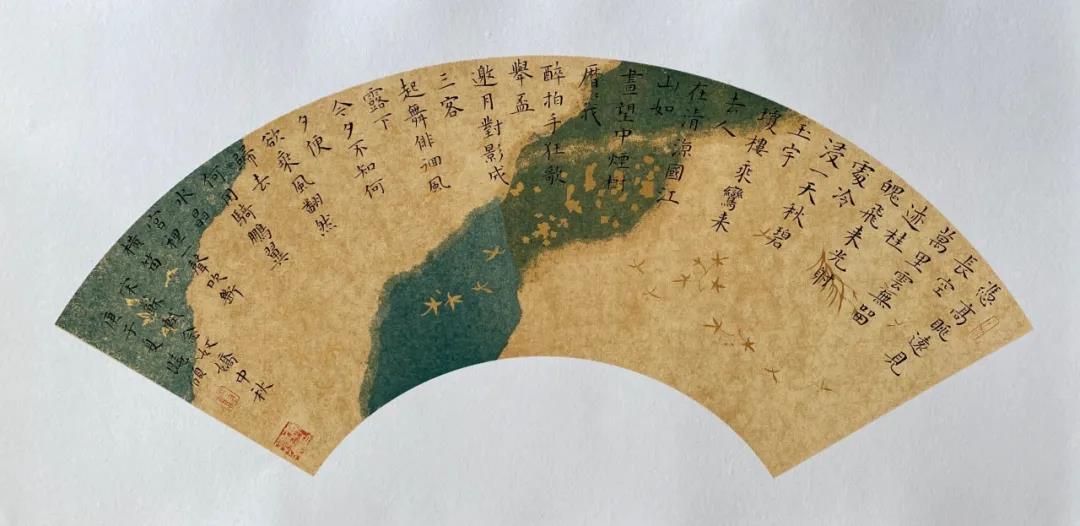 憑高眺遠見
長空
萬里雲無畱
迹桂
魄飛来光射
處冷
浸一天秋碧
玉宇
瓊樓乘鸞来
去人
在清涼國江
山如
畫望中煙樹
厯〻我
醉拍手狂歌
舉盃
邀月對影成
三客
起舞徘徊風
露下
今夕不知何
夕便
欲乘風翻然
歸去
何用騎鵬翼
水晶
宮裡一聲吹斷
橫笛
宋蘇軾念奴嬌中秋
庚子夏